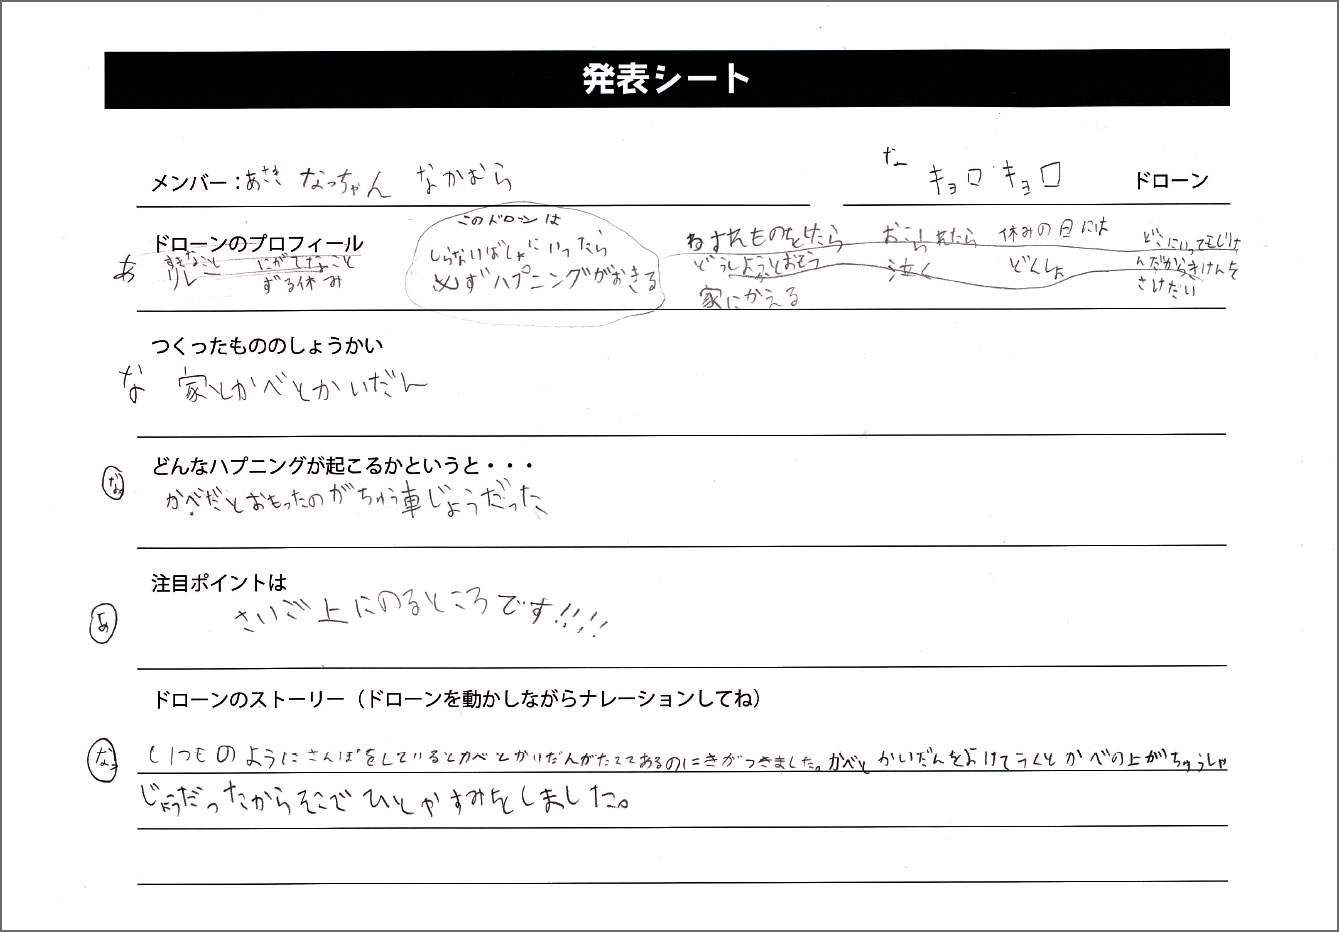 発表シート
メンバー：あさき なっちゃん なかむら
な キョロキョロ ドローン
ドローンのプロフィール
あ
すきなこと にがてなこと
リレー ずる休み
このドローンは
しらないばしょにいったら
必ずハプニングがおきる
わすれものをしたら おこられたら 休みの日には どこにいってもじけ
どうしようとおもう 泣く どくしょ んだからきけんを
家にかえる さけたい
つくったもののしょうかい
な 家とかべとかいだん
どんなハプニングが起こるかというと・・・
な かべだとおもったのがちゅう車じょうだった
注目ポイントは
あ さいご上にのるところです!!!!
ドローンのストーリー（ドローンを動かしながらナレーションしてね）
な いつものようにさんぽをしているとかべとかいだんがたててあるのにきがつきました。かべとかいだんをよけていくとかべの上がちゅうしゃ
じょうだったからそこでひとやすみをしました。